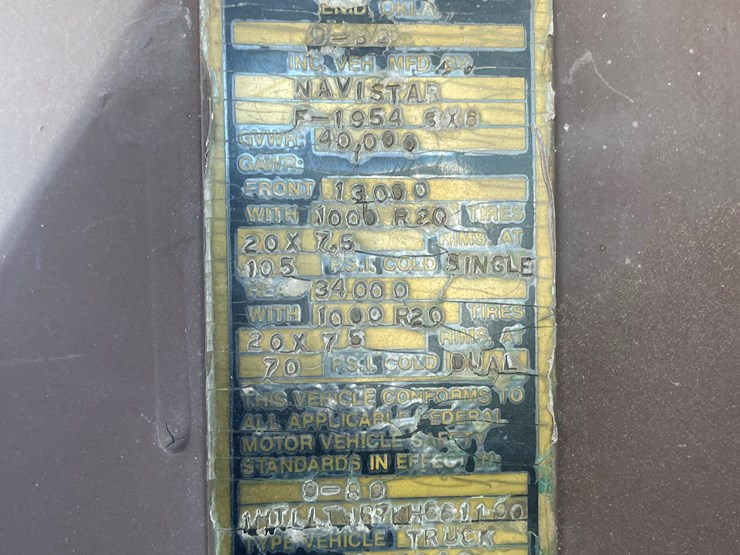 ENID OKLA
INC. VEH. MFD. BY
NAVISTAR
F-1954 6X6
GVWR: 40,000
GAWR:
FRONT 13000
WITH 1000 R20 TIRES
20 X 7.5 RIMS AT
105 P.S.I. COLD SINGLE
34000
WITH 1000 R20 TIRES
20 X 7.5 RIMS AT
70 P.S.I. COLD DUAL
THIS VEHICLE CONFORMS TO
ALL APPLICABLE FEDERAL
MOTOR VEHICLE SAFETY
STANDARDS IN EFFECT IN
TYPE VEHICLE TRUCK